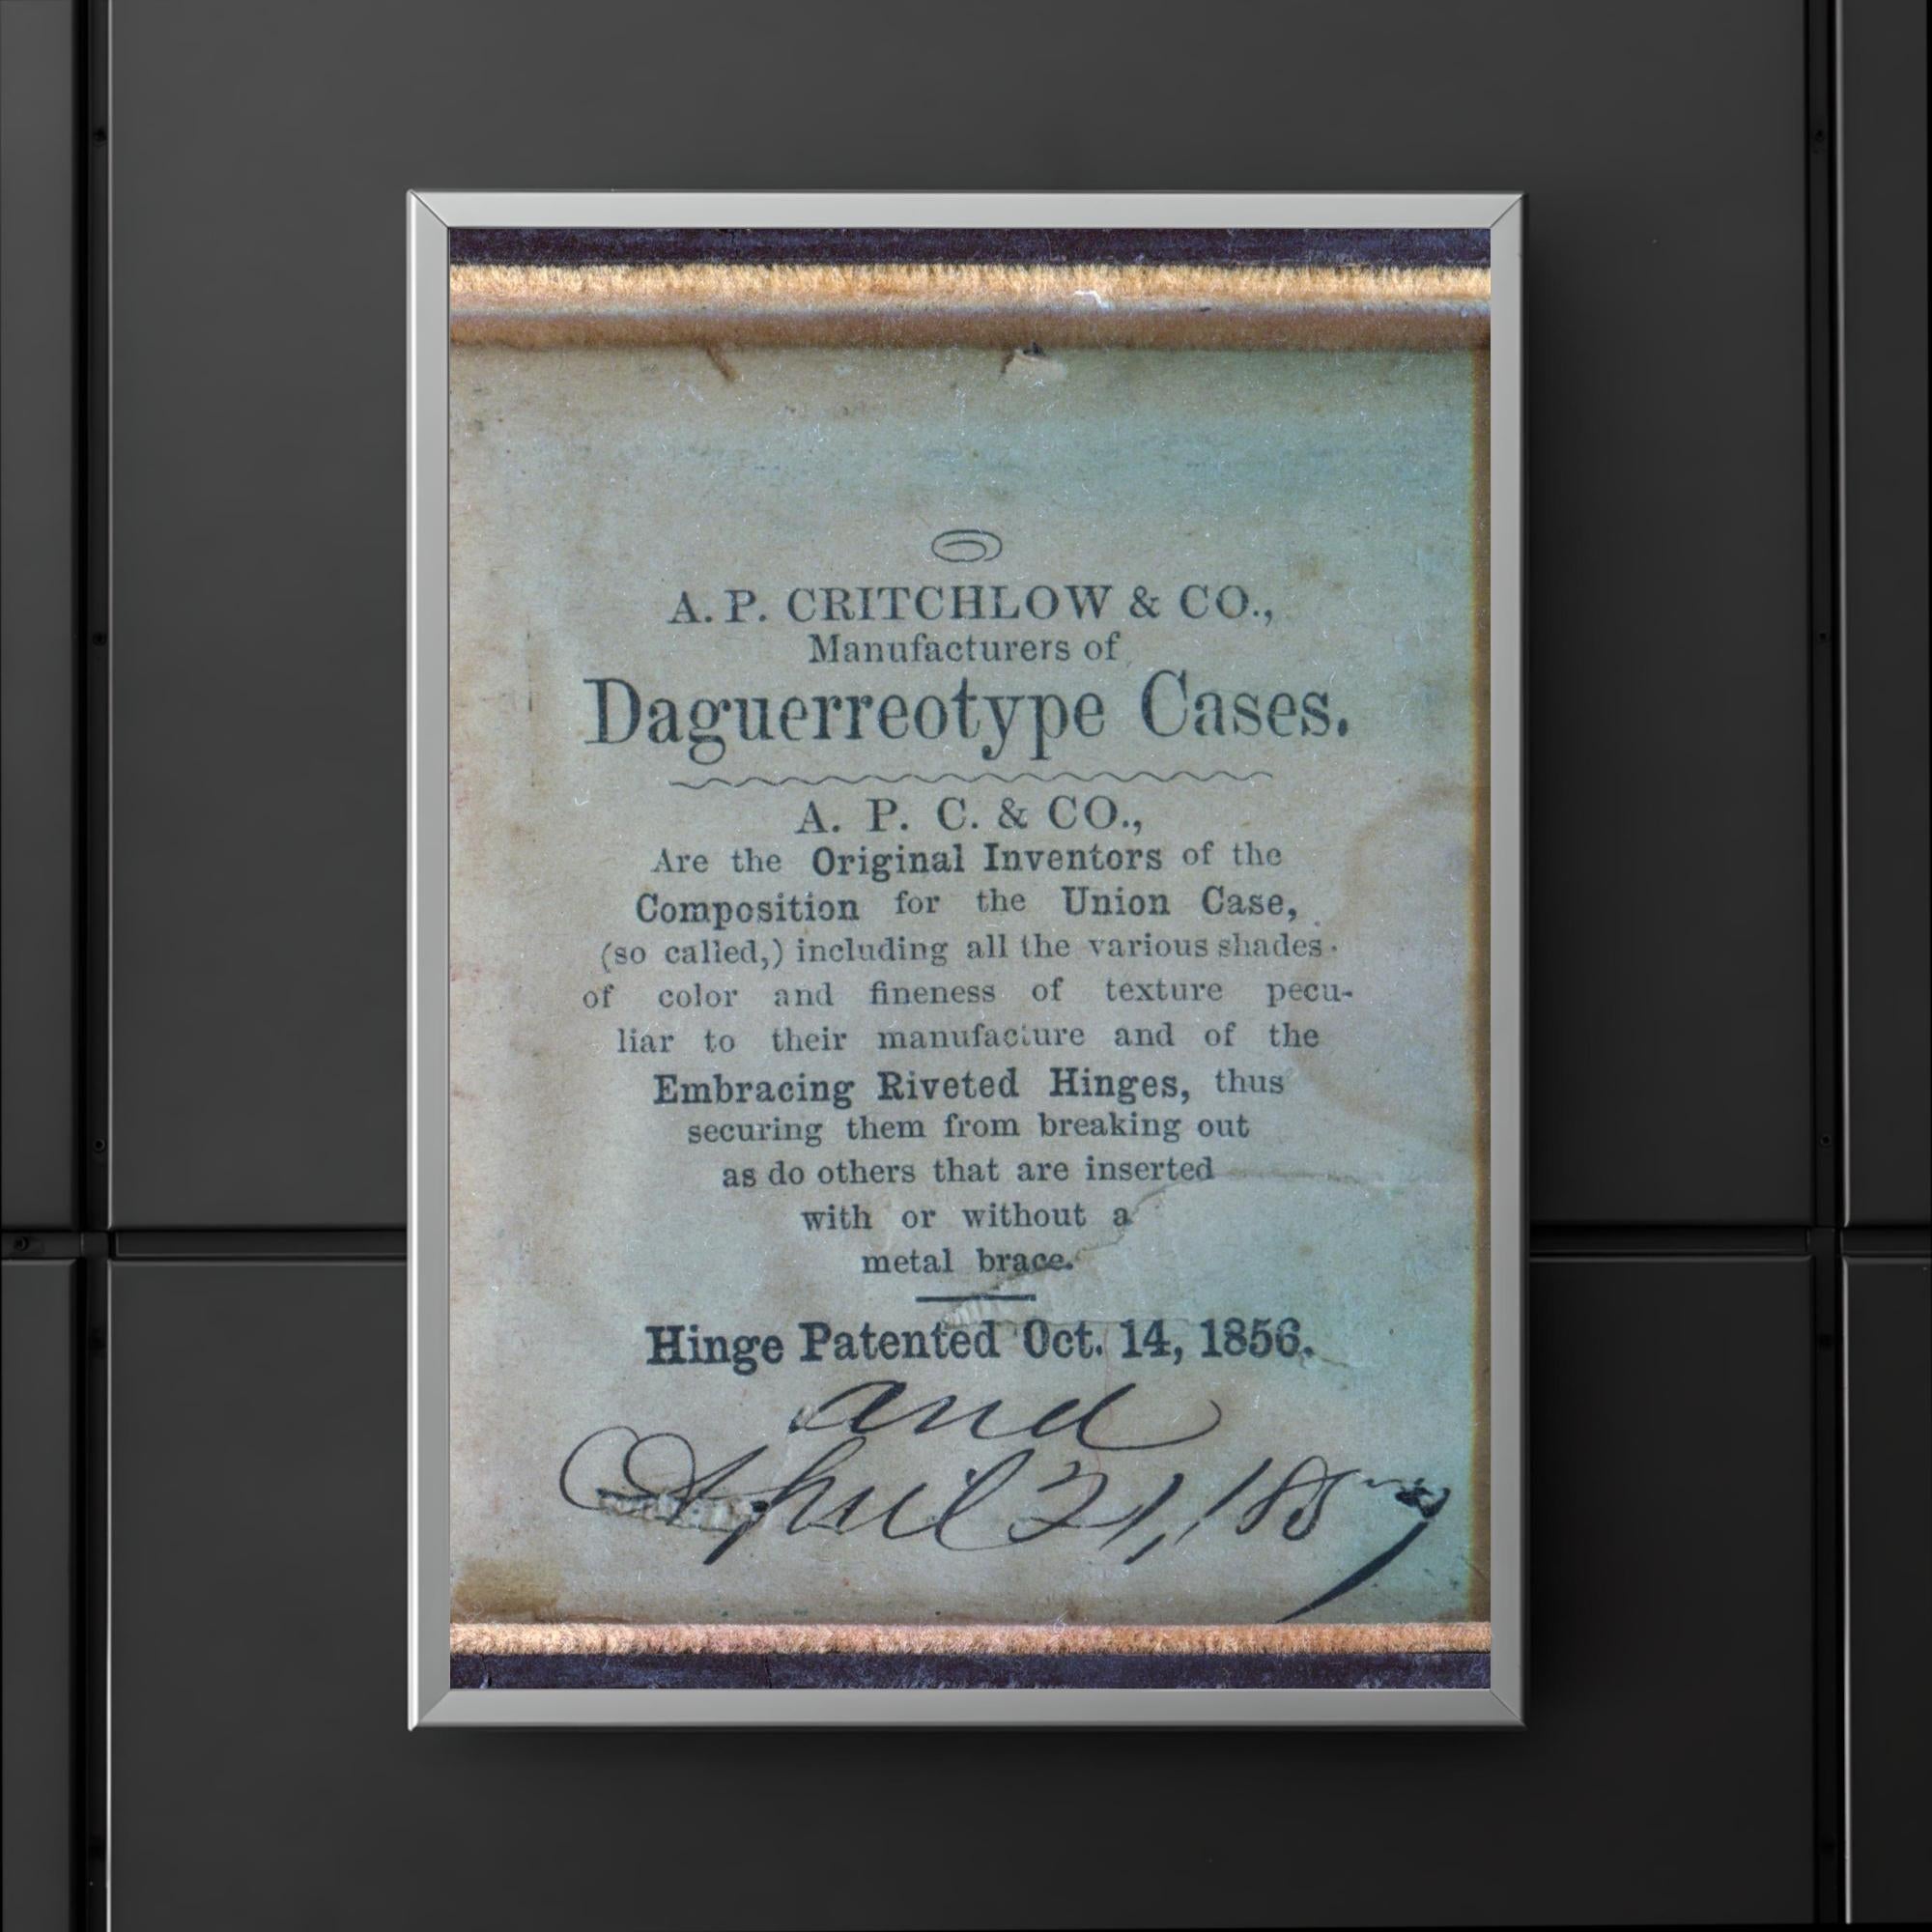 A. P. CRITCHLOW & CO.,
Manufacturers of
Daguerreotype Cases.
A. P. C. & CO.,
Are the Original Inventors of the
Composition for the Union Case,
(so called,) including all the various shades
of color and fineness of texture pecu-
liar to their manufacture and of the
Embracing Riveted Hinges, thus
securing them from breaking out
as do others that are inserted
with or without a
metal brace.
Hinge Patented Oct. 14, 1856.
and
April 21, 1857